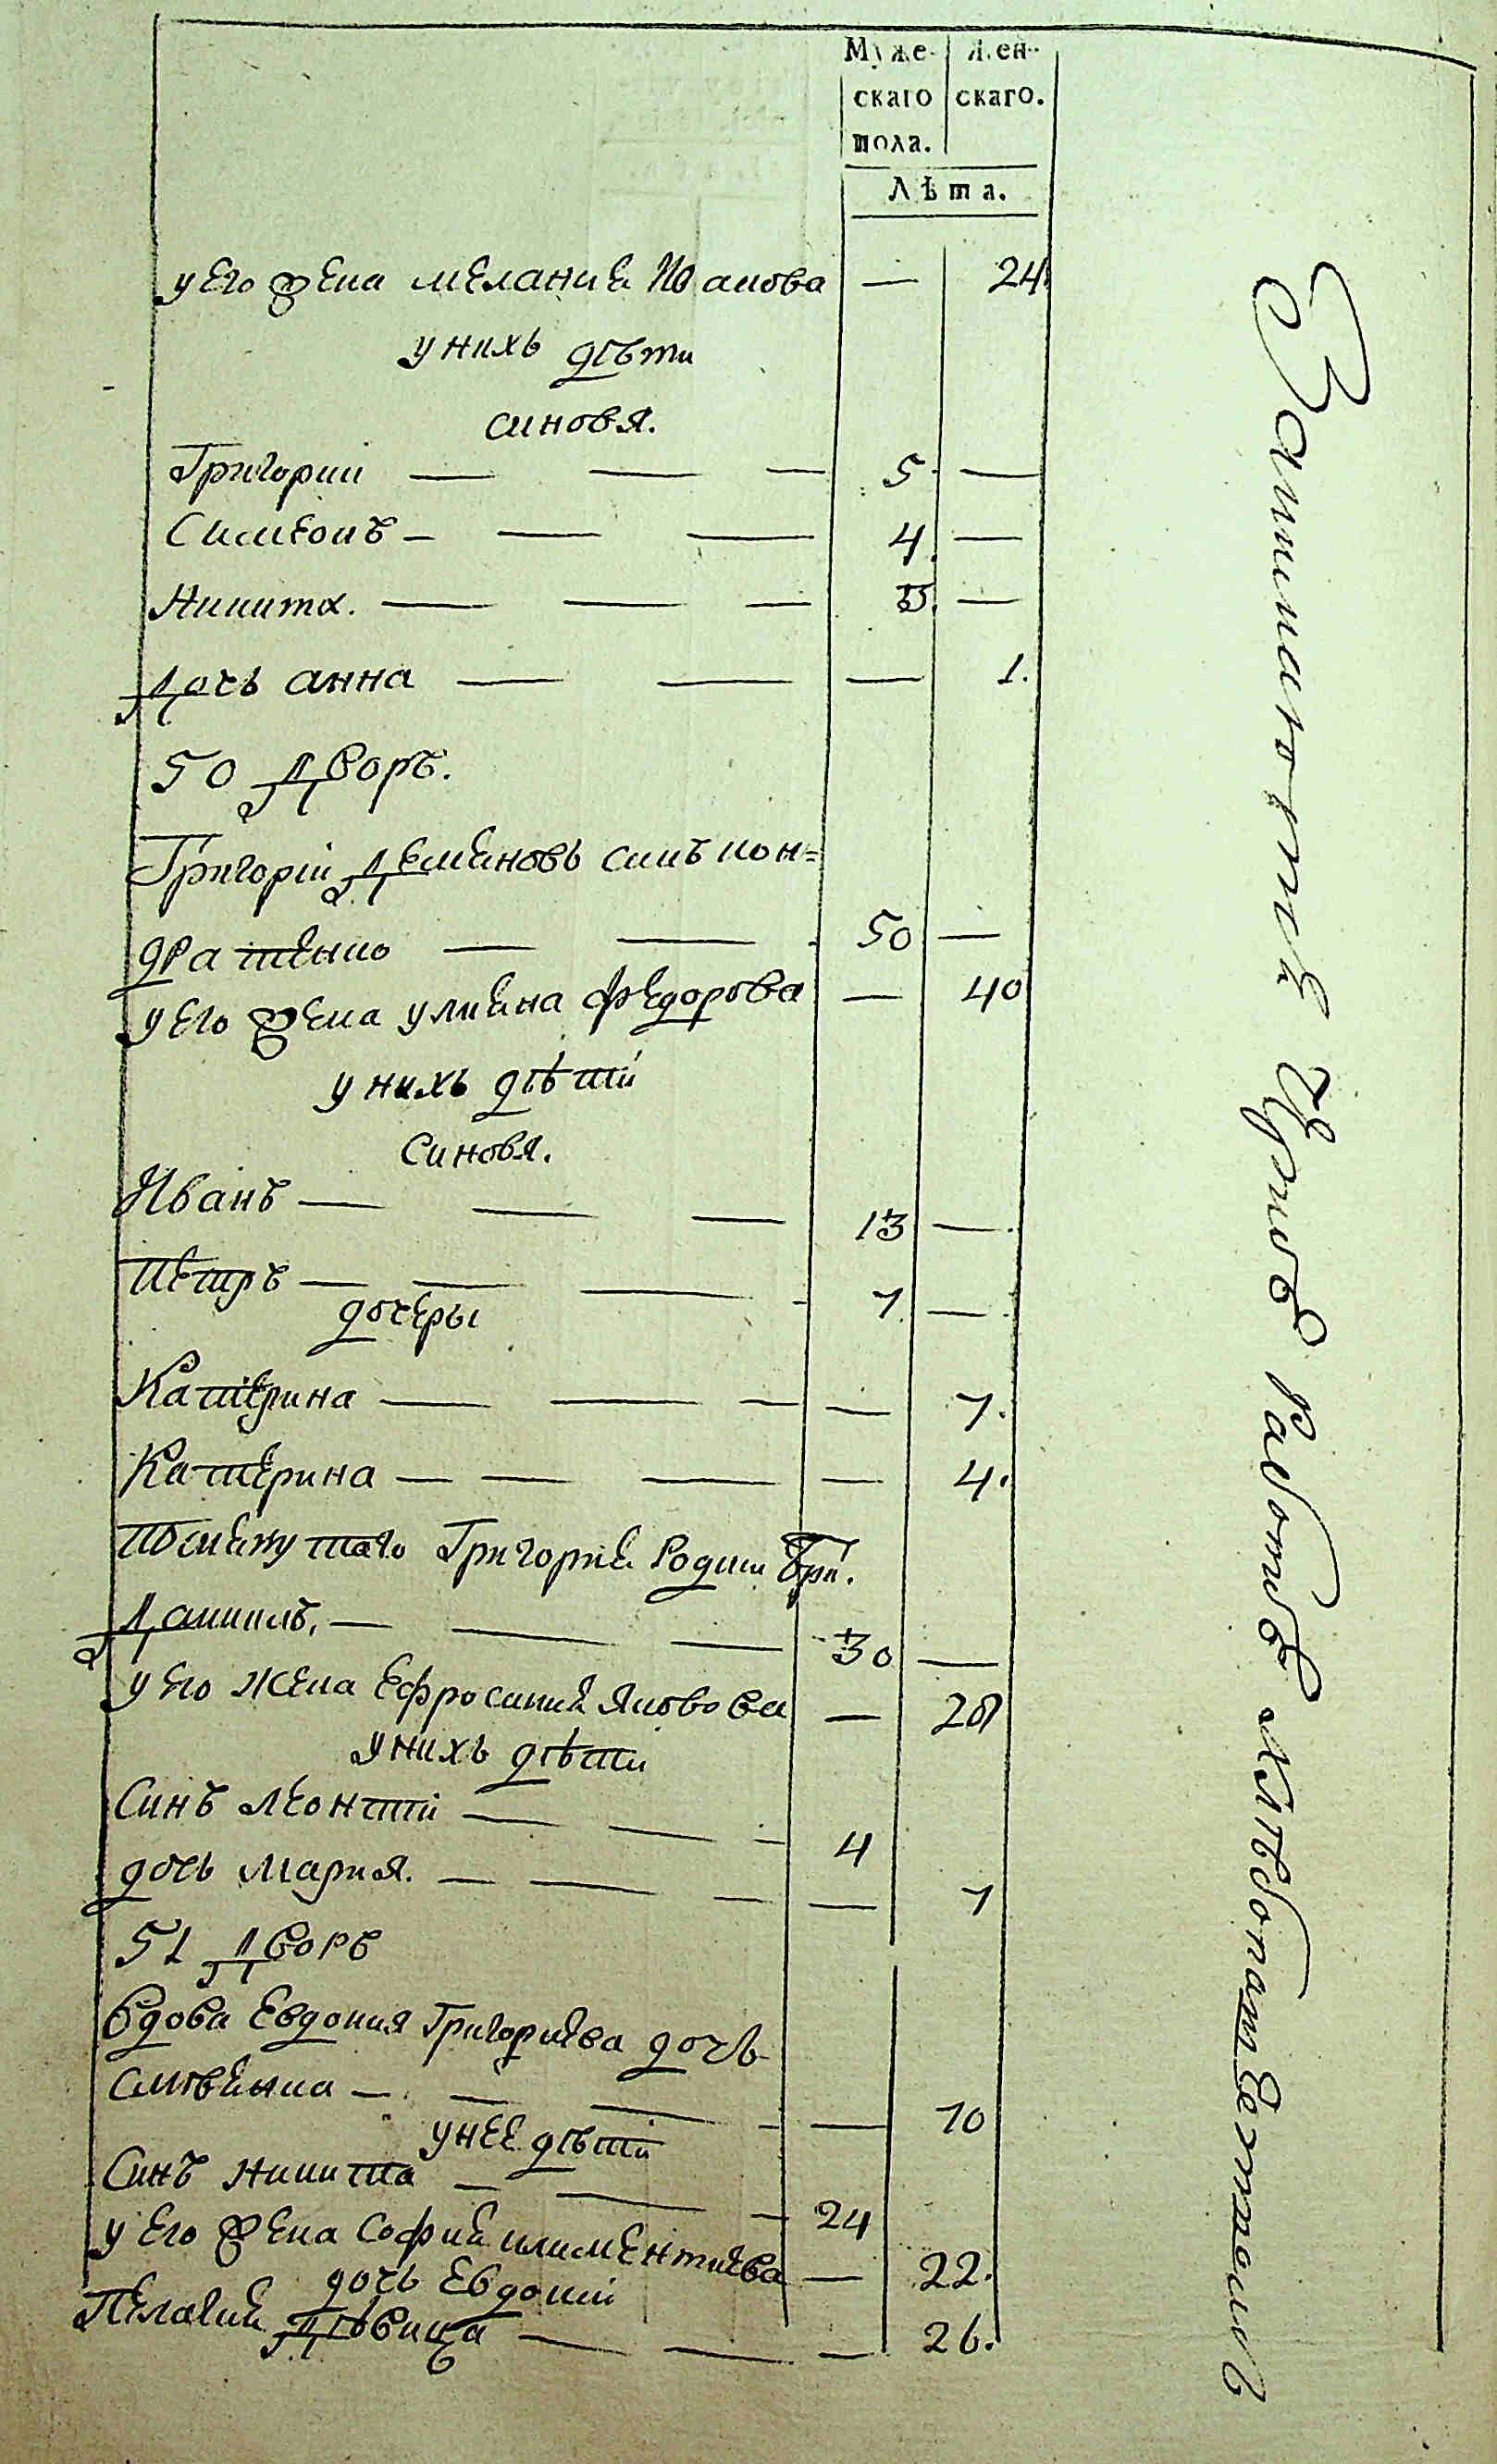 Муже-
скаго
пола.
Жен-
скаго.
Лѣта.
у Его жена мелания Иванова — 24.
у нихъ дѣти
синовя.
Григорий — — — 5. —
Симеонъ — — — 4. —
Никита. — — — 3. —
Дочь анна — — — 1.
50 Дворъ.
Григорий Деменовъ синъ кон=
дратенко — — 50 —
у Его жена улияна Федорова — 40
у нихъ дѣти
Синовя.
Иванъ — — — 13 —
Петръ — — — 7. —
дочеры
Катерина — — — — 7.
Катерина — — — — 4.
Помянутаго Григория Родни бра.
Даниилъ. — — — 30 —
у Его жена Ефросиния Яковова — 28
у нихъ дѣти
Синъ Леонтий — — — 4
дочь Мария. — — — — 7
51 Дворъ
Вдова Евдокия Григориева дочь
— — — — 70
у нее дѣти
Синъ Никита — — — 24
у Его жена София климентиева — 22.
дочь Евдокии
Пелагия Дѣвица — — — 26.
Занимаются Чрезъ работъ хлѣбопашествомъ